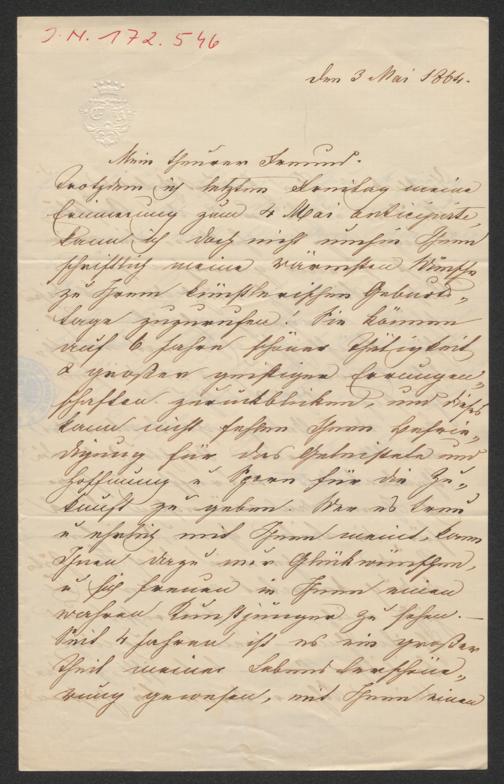 J. N. 172.546
den 3 Mai 1864.
Mein theurer Freund.
Trotzdem ich letzten Dienstag meine
Erinnerung zum 4 Mai anticipirte,
kann ich doch nicht umhin Ihnen
schriftlich meine wärmsten Wünsche
zu Ihrem künstlerischen Geburts„
tage zuzurufen! Sie können
auf 6 Jahre schöner Thätigkeit
& großer geistiger Errungen„
schaften zurückblicken, und dieses
kann nicht fehlen Ihnen Befrie„
digung für das Geleistete und
Hoffnung u Sporn für die Zu„
kunft zu geben. Wer es treu
u ehrlich mit Ihnen meint, kann
Ihnen dazu nur Glückwünschen,
u sich freuen in Ihnen einen
wahren Kunstjünger zu sehen. —
Seit 4 Jahren ist es ein großer
Theil meiner Lebens Verschöne„
rung gewesen, mit Ihnen einen